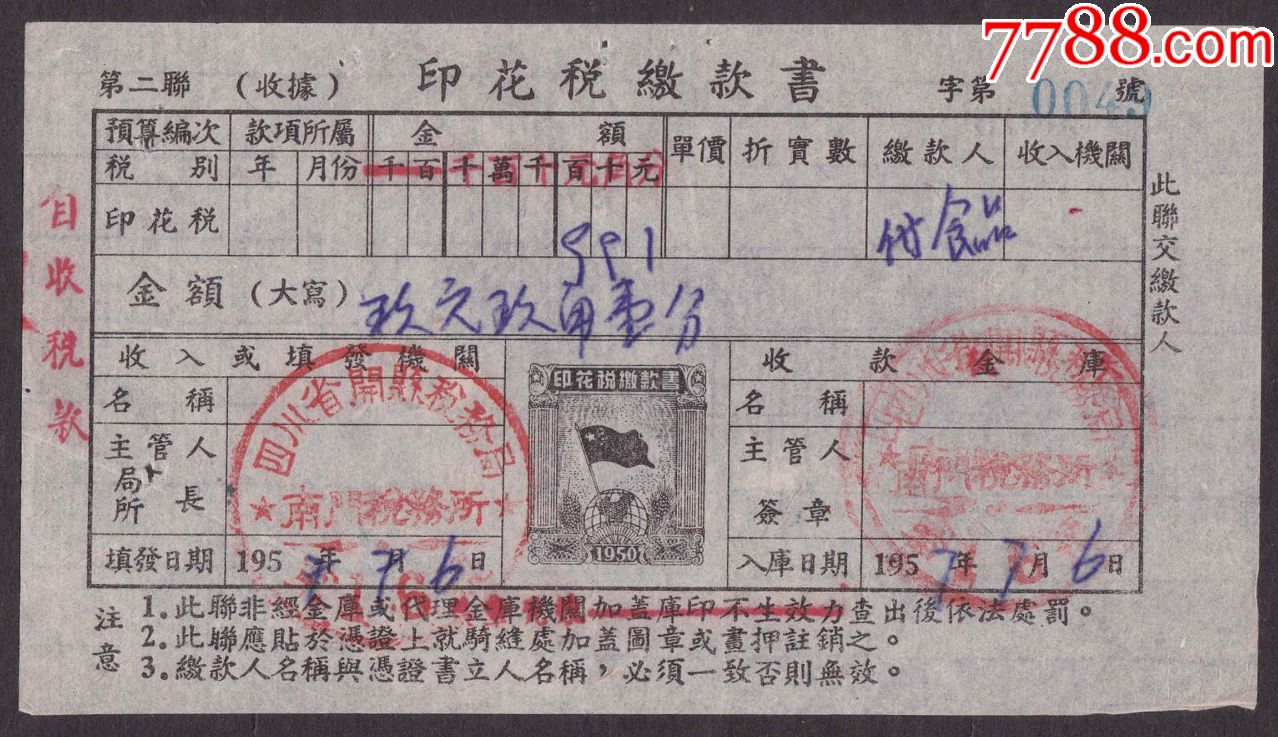 7788.com
印花稅繳款書
第二聯 (收據) 字第 0049 號
預算編次 款項所屬 金額 單價 折實數 繳款人 收入機關
稅別 年 月份 千百千萬千百十元
千百十元角分
印花稅 991 付食品
金額(大寫) 玖元玖角壹分
收入或填發機關 收款金庫
名稱 名稱
主管人 主管人
局所長 簽章
填發日期 1957年7月6日 入庫日期 1957年7月6日
印花稅繳款書
1950
四川省開縣稅務局
南門稅務所
四川省開縣稅務局
南門稅務所
自收稅款
此聯交繳款人
注意
1.此聯非經金庫或代理金庫機關加蓋庫印不生效力查出後依法處罰。
2.此聯應貼於憑證上就騎縫處加蓋圖章或畫押註銷之。
3.繳款人名稱與憑證書立人名稱,必須一致否則無效。